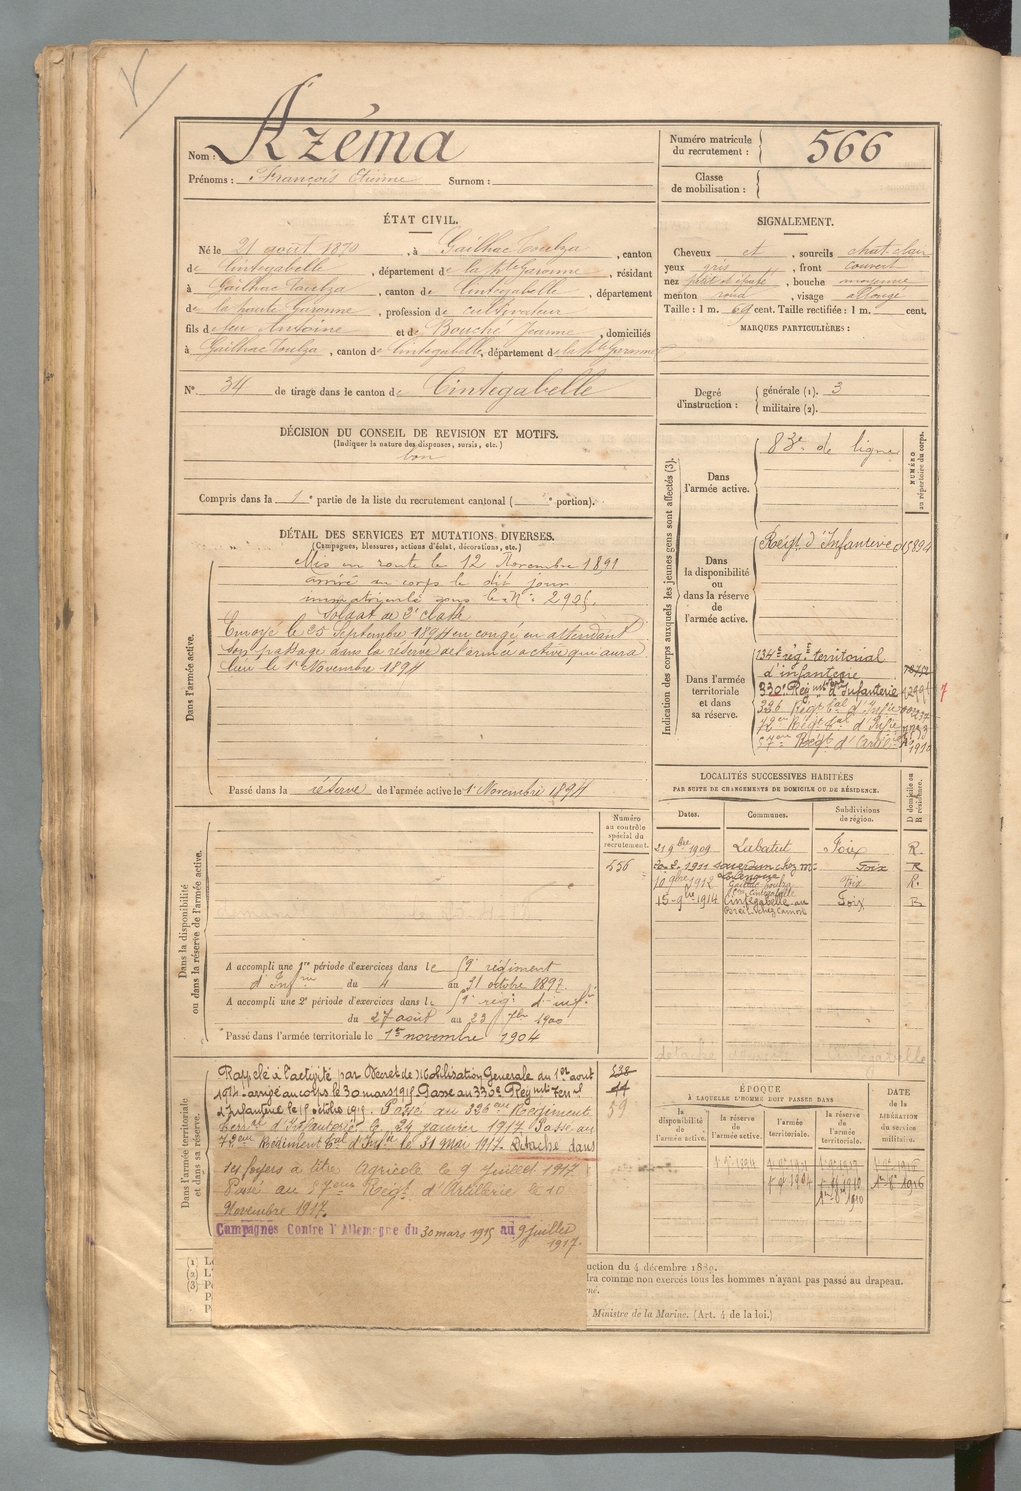 Nom : Azéma
Prénoms : François Etienne Surnom :
Numéro matricule du recrutement : 566
Classe de mobilisation :
ÉTAT CIVIL.
Né le 21 août 1870, à Gailhac Toulza, canton
de Cintegabelle, département de la hte Garonne, résidant
à Gailhac Toulza, canton de Cintegabelle, département
de la haute Garonne, profession de cultivateur
fils de feu Antoine et de Bouché Jeanne, domiciliés
à Gailhac Toulza, canton de Cintegabelle, département de la hte Garonne
N° 34 de tirage dans le canton de Cintegabelle
SIGNALEMENT.
Cheveux et, sourcils chat. clair
yeux gris, front couvert
nez, bouche moyenne
menton rond, visage allongé
Taille : 1 m. cent. Taille rectifiée : 1 m. cent.
MARQUES PARTICULIÈRES :
Degré d'instruction :
générale (1). 3
militaire (2).
DÉCISION DU CONSEIL DE REVISION ET MOTIFS.
(Indiquer la nature des dispenses, sursis, etc.)
bon
Compris dans la 1e partie de la liste du recrutement cantonal ( e portion).
DÉTAIL DES SERVICES ET MUTATIONS DIVERSES.
(Campagnes, blessures, actions d'éclat, décorations, etc.)
Dans l'armée active.
Mis en route le 12 Novembre 1891
arrivé au corps le dit jour
immatriculé sous le N° 2905.
Soldat de 2e classe
Envoyé le 25 Septembre 1894 en congé en attendant
son passage dans la réserve de l'armée active qui aura
lieu le 1er Novembre 1894
Passé dans la réserve de l'armée active le 1er Novembre 1894
Indication des corps auxquels les jeunes gens sont affectés (3).
NUMÉRO au répertoire du corps.
Dans l'armée active.
83e de ligne
Dans la disponibilité ou dans la réserve de l'armée active.
Régt d'Infanterie
Dans l'armée territoriale et dans sa réserve.
134e rég. territorial
d'infanterie
330e Régmt d'Infanterie
336 Régt tal d'Infie
72e Régt tal d'Infie
57eme Régt d'Artie
LOCALITÉS SUCCESSIVES HABITÉES
PAR SUITE DE CHANGEMENTS DE DOMICILE OU DE RÉSIDENCE.
Dates. Communes. Subdivisions de région. D domicile ou R résidence.
21 9bre 1909 Labatut Foix R.
1911 Saverdun chez Mr Foix R
1912 Foix R.
15 9bre 1914 Cintegabelle au Foix R
Dans la disponibilité ou dans la réserve de l'armée active.
Numéro au contrôle spécial du recrutement.
556
A accompli une 1re période d'exercices dans le 59e régiment
d'Infrie du 4 au 31 octobre 1897
A accompli une 2e période d'exercices dans le 59e régt d'infie
du 27 août au 23 7bre 1900
Passé dans l'armée territoriale le 1er novembre 1904
Dans l'armée territoriale et dans sa réserve.
59
Rappelé à l'activité par Décret de Mobilisation Générale du 1er août
1914. arrivé au corps le 30 mars 1915 Passé au 330e Régmt Terral
d'Infanterie le 15 octobre 1915. Passé au 336eme Régiment
terral d'Infanterie le 24 janvier 1917 Passé au
72eme Régiment tal d'Infie le 31 Mai 1917. Détaché dans
ses foyers à titre Agricole le 9 Juillet 1917
Passé au 57eme Régt d'Artillerie le 10
Novembre 1917.
Campagnes Contre l'Allemagne du 30 mars 1915 au 9 juillet
1917
ÉPOQUE
A LAQUELLE L'HOMME DOIT PASSER DANS
la disponibilité de l'armée active. la réserve de l'armée active. l'armée territoriale. la réserve de l'armée territoriale.
DATE DE LA LIBÉRATION du service militaire.
uction du 4 décembre 1889.
dra comme non exercés tous les hommes n'ayant pas passé au drapeau.
Ministre de la Marine. (Art. 4 de la loi.)